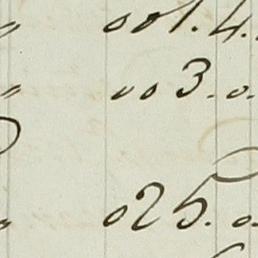 " 001.4.
" 003.0.
" 025.0.